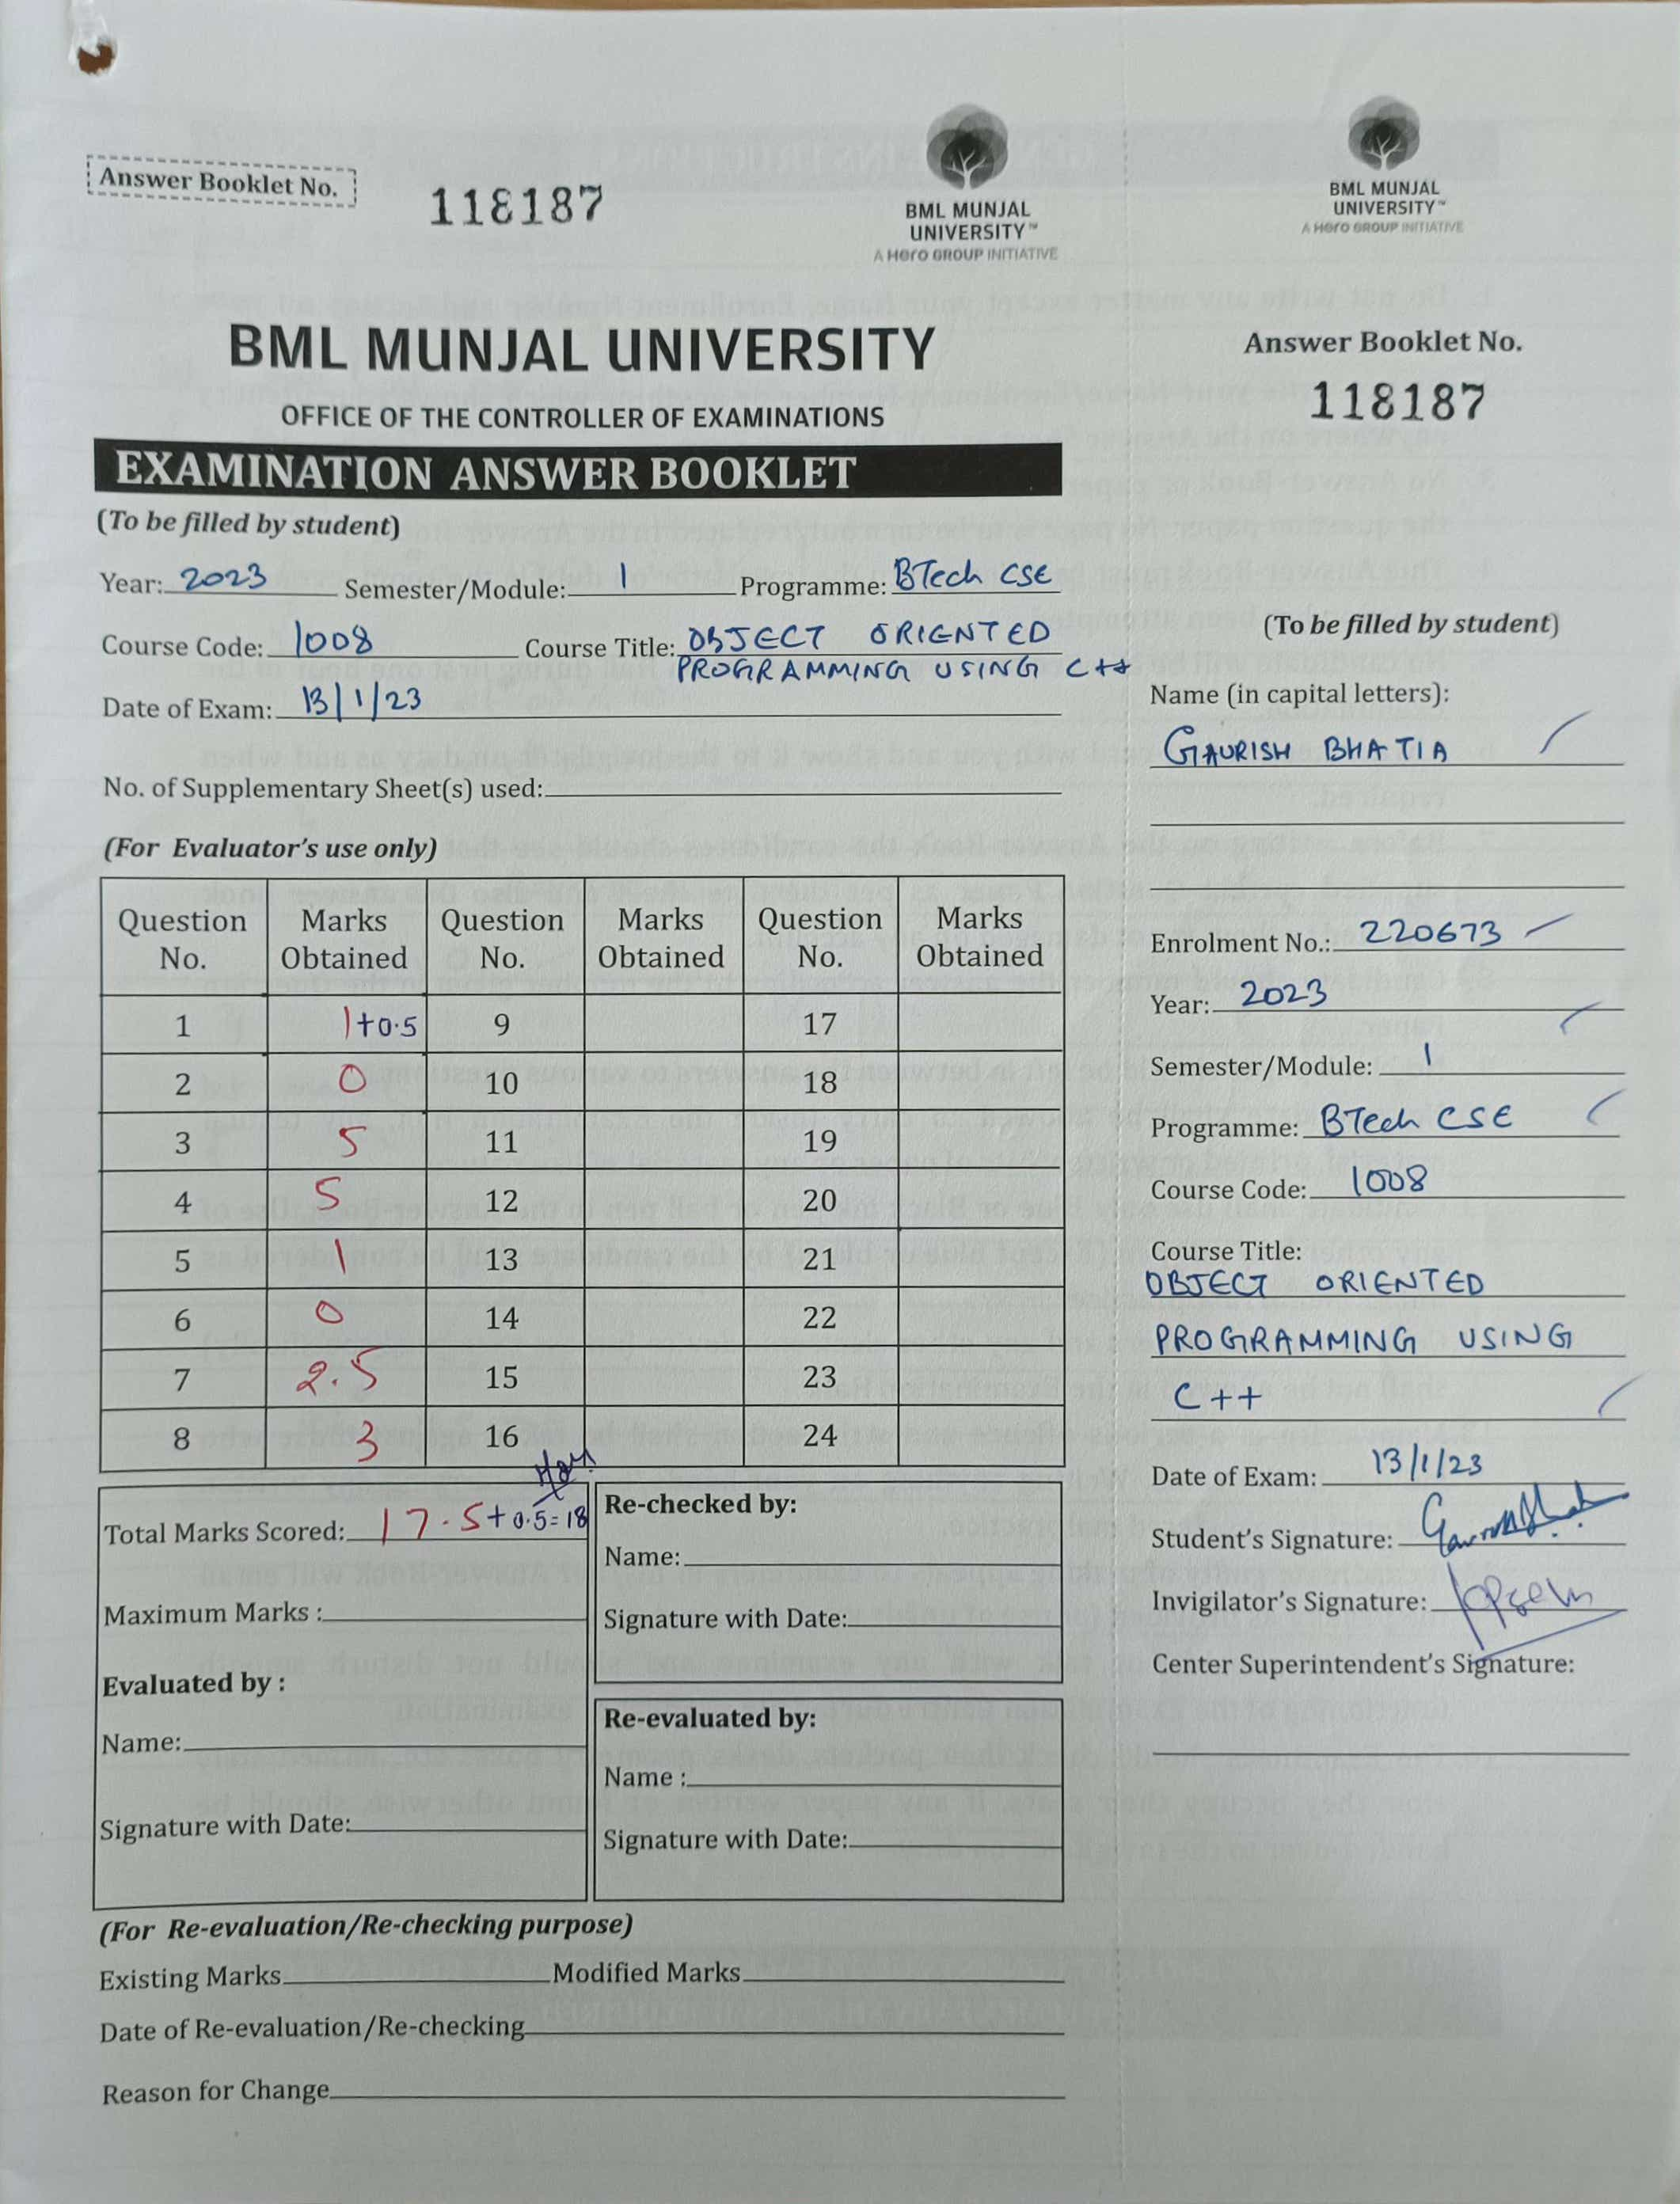 Answer Booklet No.
118187
BML MUNJAL
UNIVERSITY™
A Hero GROUP INITIATIVE
BML MUNJAL UNIVERSITY
OFFICE OF THE CONTROLLER OF EXAMINATIONS
EXAMINATION ANSWER BOOKLET
(To be filled by student)
Year: 2023 Semester/Module: 1 Programme: BTech CSE
Course Code: 1008 Course Title: OBJECT ORIENTED
PROGRAMMING USING C++
Date of Exam: 13/1/23
No. of Supplementary Sheet(s) used:
(For Evaluator's use only)
Question No. Marks Obtained Question No. Marks Obtained Question No. Marks Obtained
1 1+0.5 9 17
2 0 10 18
3 5 11 19
4 5 12 20
5 1 13 21
6 0 14 22
7 2.5 15 23
8 3 16 24
Total Marks Scored: 17.5+0.5=18
Maximum Marks :
Evaluated by :
Name:
Signature with Date:
Re-checked by:
Name:
Signature with Date:
Re-evaluated by:
Name :
Signature with Date:
(For Re-evaluation/Re-checking purpose)
Existing Marks Modified Marks
Date of Re-evaluation/Re-checking
Reason for Change
BML MUNJAL
UNIVERSITY™
A Hero GROUP INITIATIVE
Answer Booklet No.
118187
(To be filled by student)
Name (in capital letters):
GAURISH BHATIA
Enrolment No.: 220673
Year: 2023
Semester/Module: 1
Programme: BTech CSE
Course Code: 1008
Course Title:
OBJECT ORIENTED
PROGRAMMING USING
C++
Date of Exam: 13/1/23
Student's Signature:
Invigilator's Signature:
Center Superintendent's Signature: